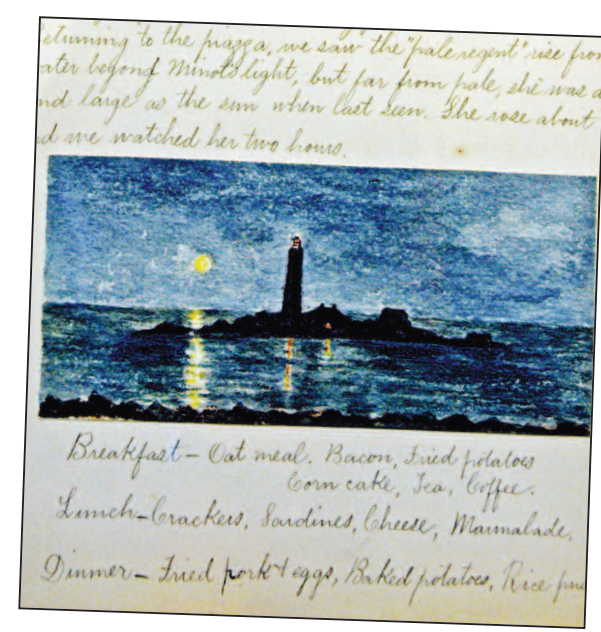 eturning to the piazza, we saw the "pale regent" rise from
ater beyond Minot's light, but far from pale, she was a
nd large as the sun when last seen. She rose about
d we watched her two hours.
Breakfast – Oat meal. Bacon, Fried potatoes
Corn cake, Tea, Coffee.
Lunch – Crackers, Sardines, Cheese, Marmalade,
Dinner – Fried pork & eggs, Baked potatoes, Rice